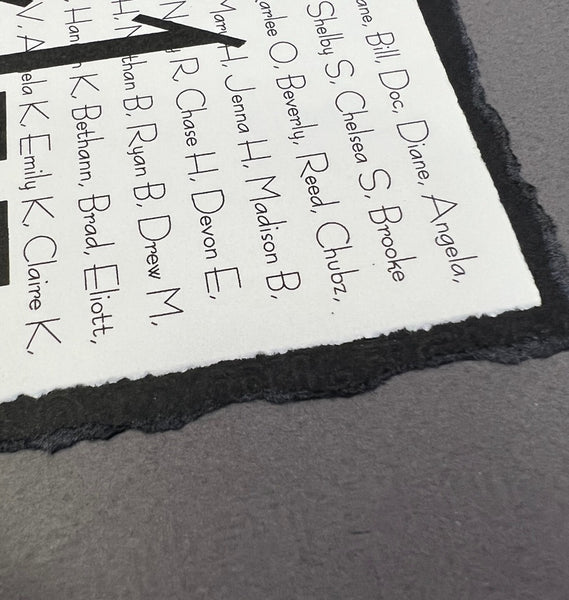 Bill, Doc, Diane, Angela,
Shelby S, Chelsea S, Brooke
O, Beverly, Reed, Chubz, .
H, Jenna H, Madison B,
R Chase H, Devon E,
B, Ryan B, Drew M,
K, Bethann, Brad, Eliott,
K, Emily K, Claire K,